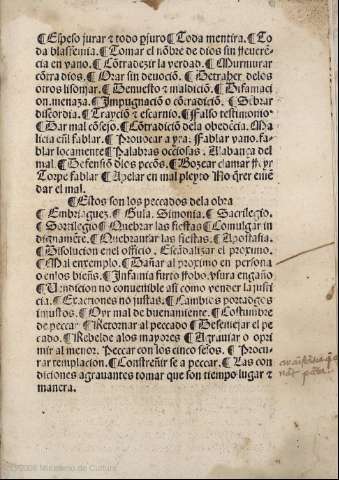 ¶ Espeso jurar & todo pjuro ¶ Toda mentira. ¶ To
da blasfemia. ¶ Tomar el nõbre de dios sin reuerẽ
cia en vano. ¶ Cõtradezir la verdad. ¶ Murmurar
cõtra dios. ¶ Orar sin deuociõ. ¶ Detraher delos
otros lisonjar. ¶ Denuesto & maldiciõ. ¶ Difamaci
on. menaza. ¶ Impugnaciõ o cõtradiciõ. ¶ Sẽbrar
discordia. ¶ Trayciõ & escarnio. ¶ Falso testimonio
¶ Dar mal cõsejo. ¶ Cõtradiciõ dela obediẽcia. Ma
licia enl fablar. ¶ Prouocar a yra. Fablar vano. fa
blar locamente ¶ Palabras occiosas. Alabança del
mal. ¶ Defensiõ dlos pecõs. ¶ Bozear clamar
Torpe fablar ¶ Apelar en mal pleyto No qrer enmẽ
dar el mal.
¶ Estos son los peccados dela obra
¶ Embriaguez. ¶ Gula. Simonia. ¶ Sacrilegio.
¶ Sortilegio ¶ Quebrar las fiestas ¶ Comulgar in
dignamẽte. ¶ Quebrantar las fiestas. ¶ Apostasia.
¶ Dissolucion enel officio. Escãdalizar el proximo.
¶ Mal enxemplo. ¶ Dañar al proximo en persona
o enlos bieñs. ¶ Infamia furto robo. vsura engaño
¶ Vendicion no conuenible assi como vender la justi
cia. ¶ Exactiones no justas. ¶ Cambios portadgos
injustos. ¶ Oyr mal de buenamiente. ¶ Costumbre
de peccar ¶ Retornar al peccado ¶ Desenjejar el pe
cado. ¶ Rebelde alos mayores ¶ Agrauiar o opri
mir al menor. Peccar con los cinco sesos. ¶ Procu
rar templacion. ¶ Constreñir se a peccar. ¶ Las con
diciones agrauantes tomar que son tiempo lugar &
manera.
2008 Ministerio de Cultura